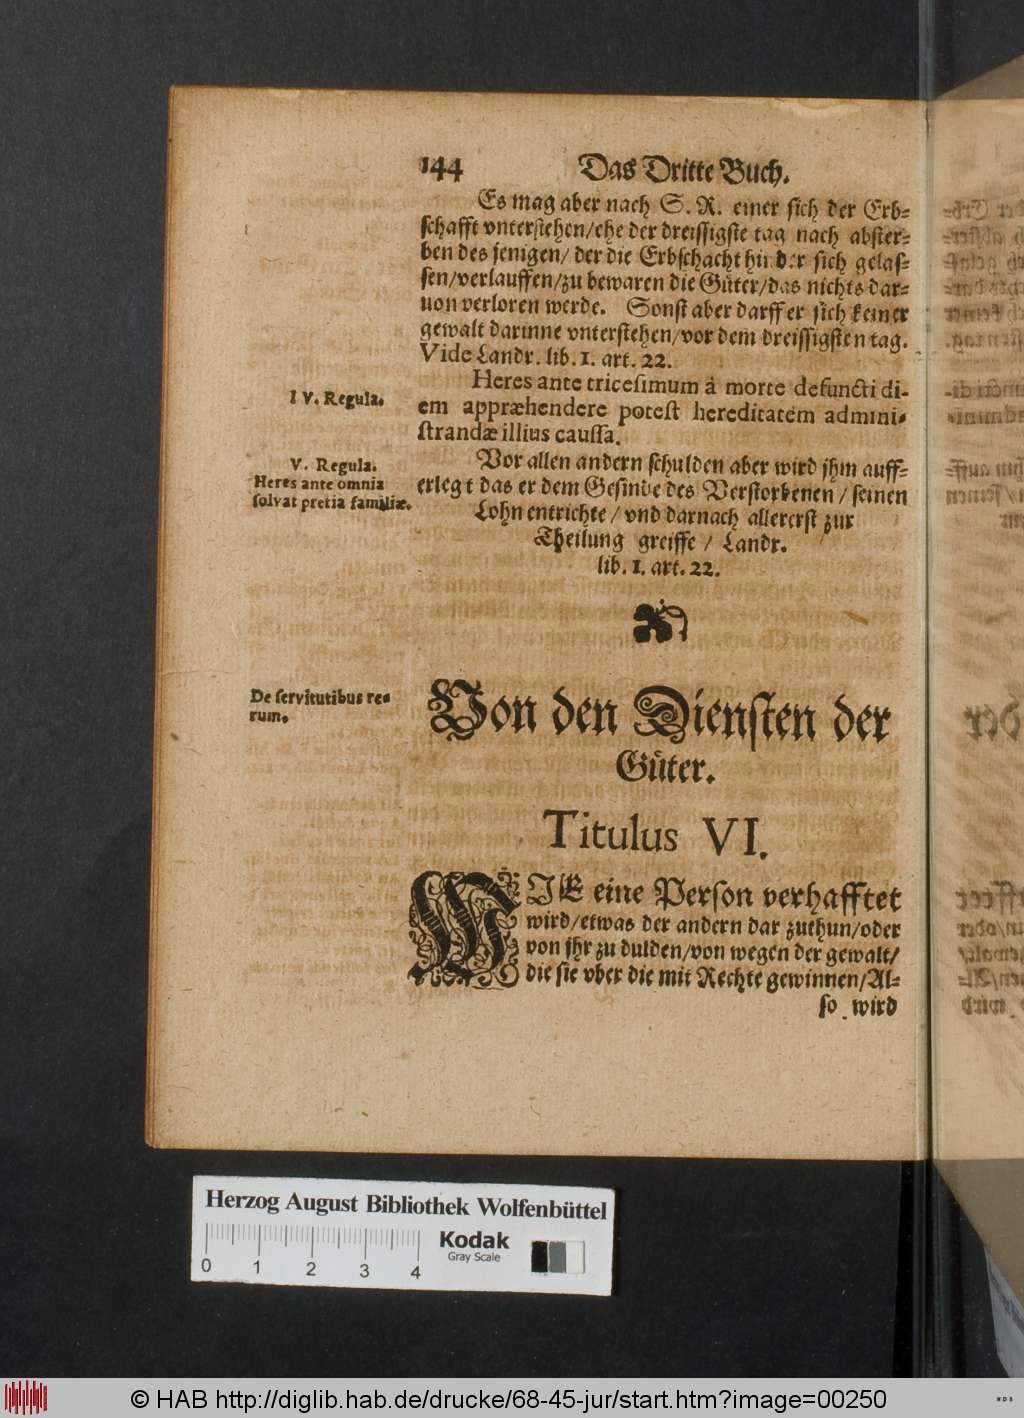 144 Das Dritte Buch.
Es mag aber nach S. R. einer sich der Erb=
schafft vnterstehen/ehe der dreissigste tag nach abster=
ben des jenigen/ der die Erbschacht hinder sich gelas=
sen/verlauffen/zu bewaren die Güter/das nichts dar=
uon verloren werde. Sonst aber darff er sich keiner
gewalt darinne vnterstehen/vor dem dreissigsten tag.
Vide Landr. lib. 1. art. 22.
IV. Regula.
Heres ante tricesimum à morte defuncti di-
em appræhendere potest hereditatem admini-
strandæ illius caussa.
V. Regula.
Heres ante omnia
solvat pretia familiæ.
Vor allen andern schulden aber wird jhm auff=
erlegt das er dem Gesinde des Verstorbenen / seinen
Lohn entrichte / vnd darnach allererst zur
Theilung greiffe / Landr.
lib. 1. art. 22.
De servitutibus re-
rum.
Von den Diensten der
Güter.
Titulus VI.
WIE eine Person verhafftet
wird/etwas der andern dar zuthun/oder
von jhr zu dulden/von wegen der gewalt/
die sie vber die mit Rechte gewinnen/Al=
so wird
Herzog August Bibliothek Wolfenbüttel
0 1 2 3 4
Kodak
Gray Scale
© HAB http://diglib.hab.de/drucke/68-45-jur/start.htm?image=00250